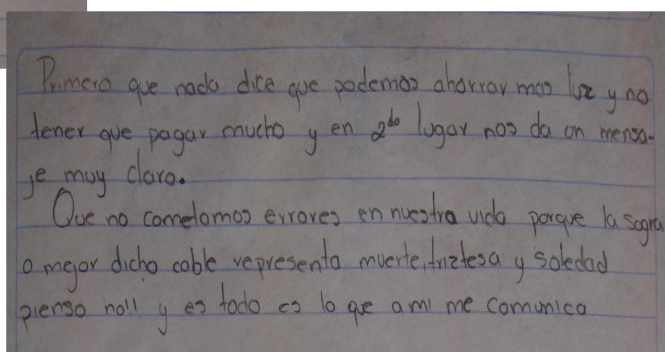 Primero que nada dice que podemos ahorrar mas luz y no
tener que pagar mucho y en 2do lugar nos da un mensa-
je muy claro.
Que no cometamos errores en nuestra vida porque la sogra
o mejor dicho cable representa muerte, triztesa y soledad
pienso no!! y es todo es lo que a mi me comunica